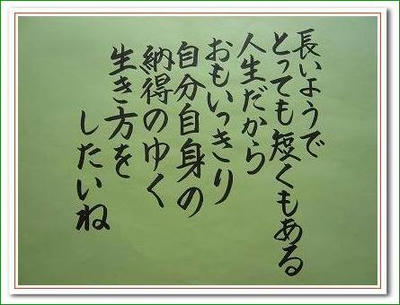 長いようで
とっても短くもある
人生だから
おもいっきり
自分自身の
納得のゆく
生き方を
したいね